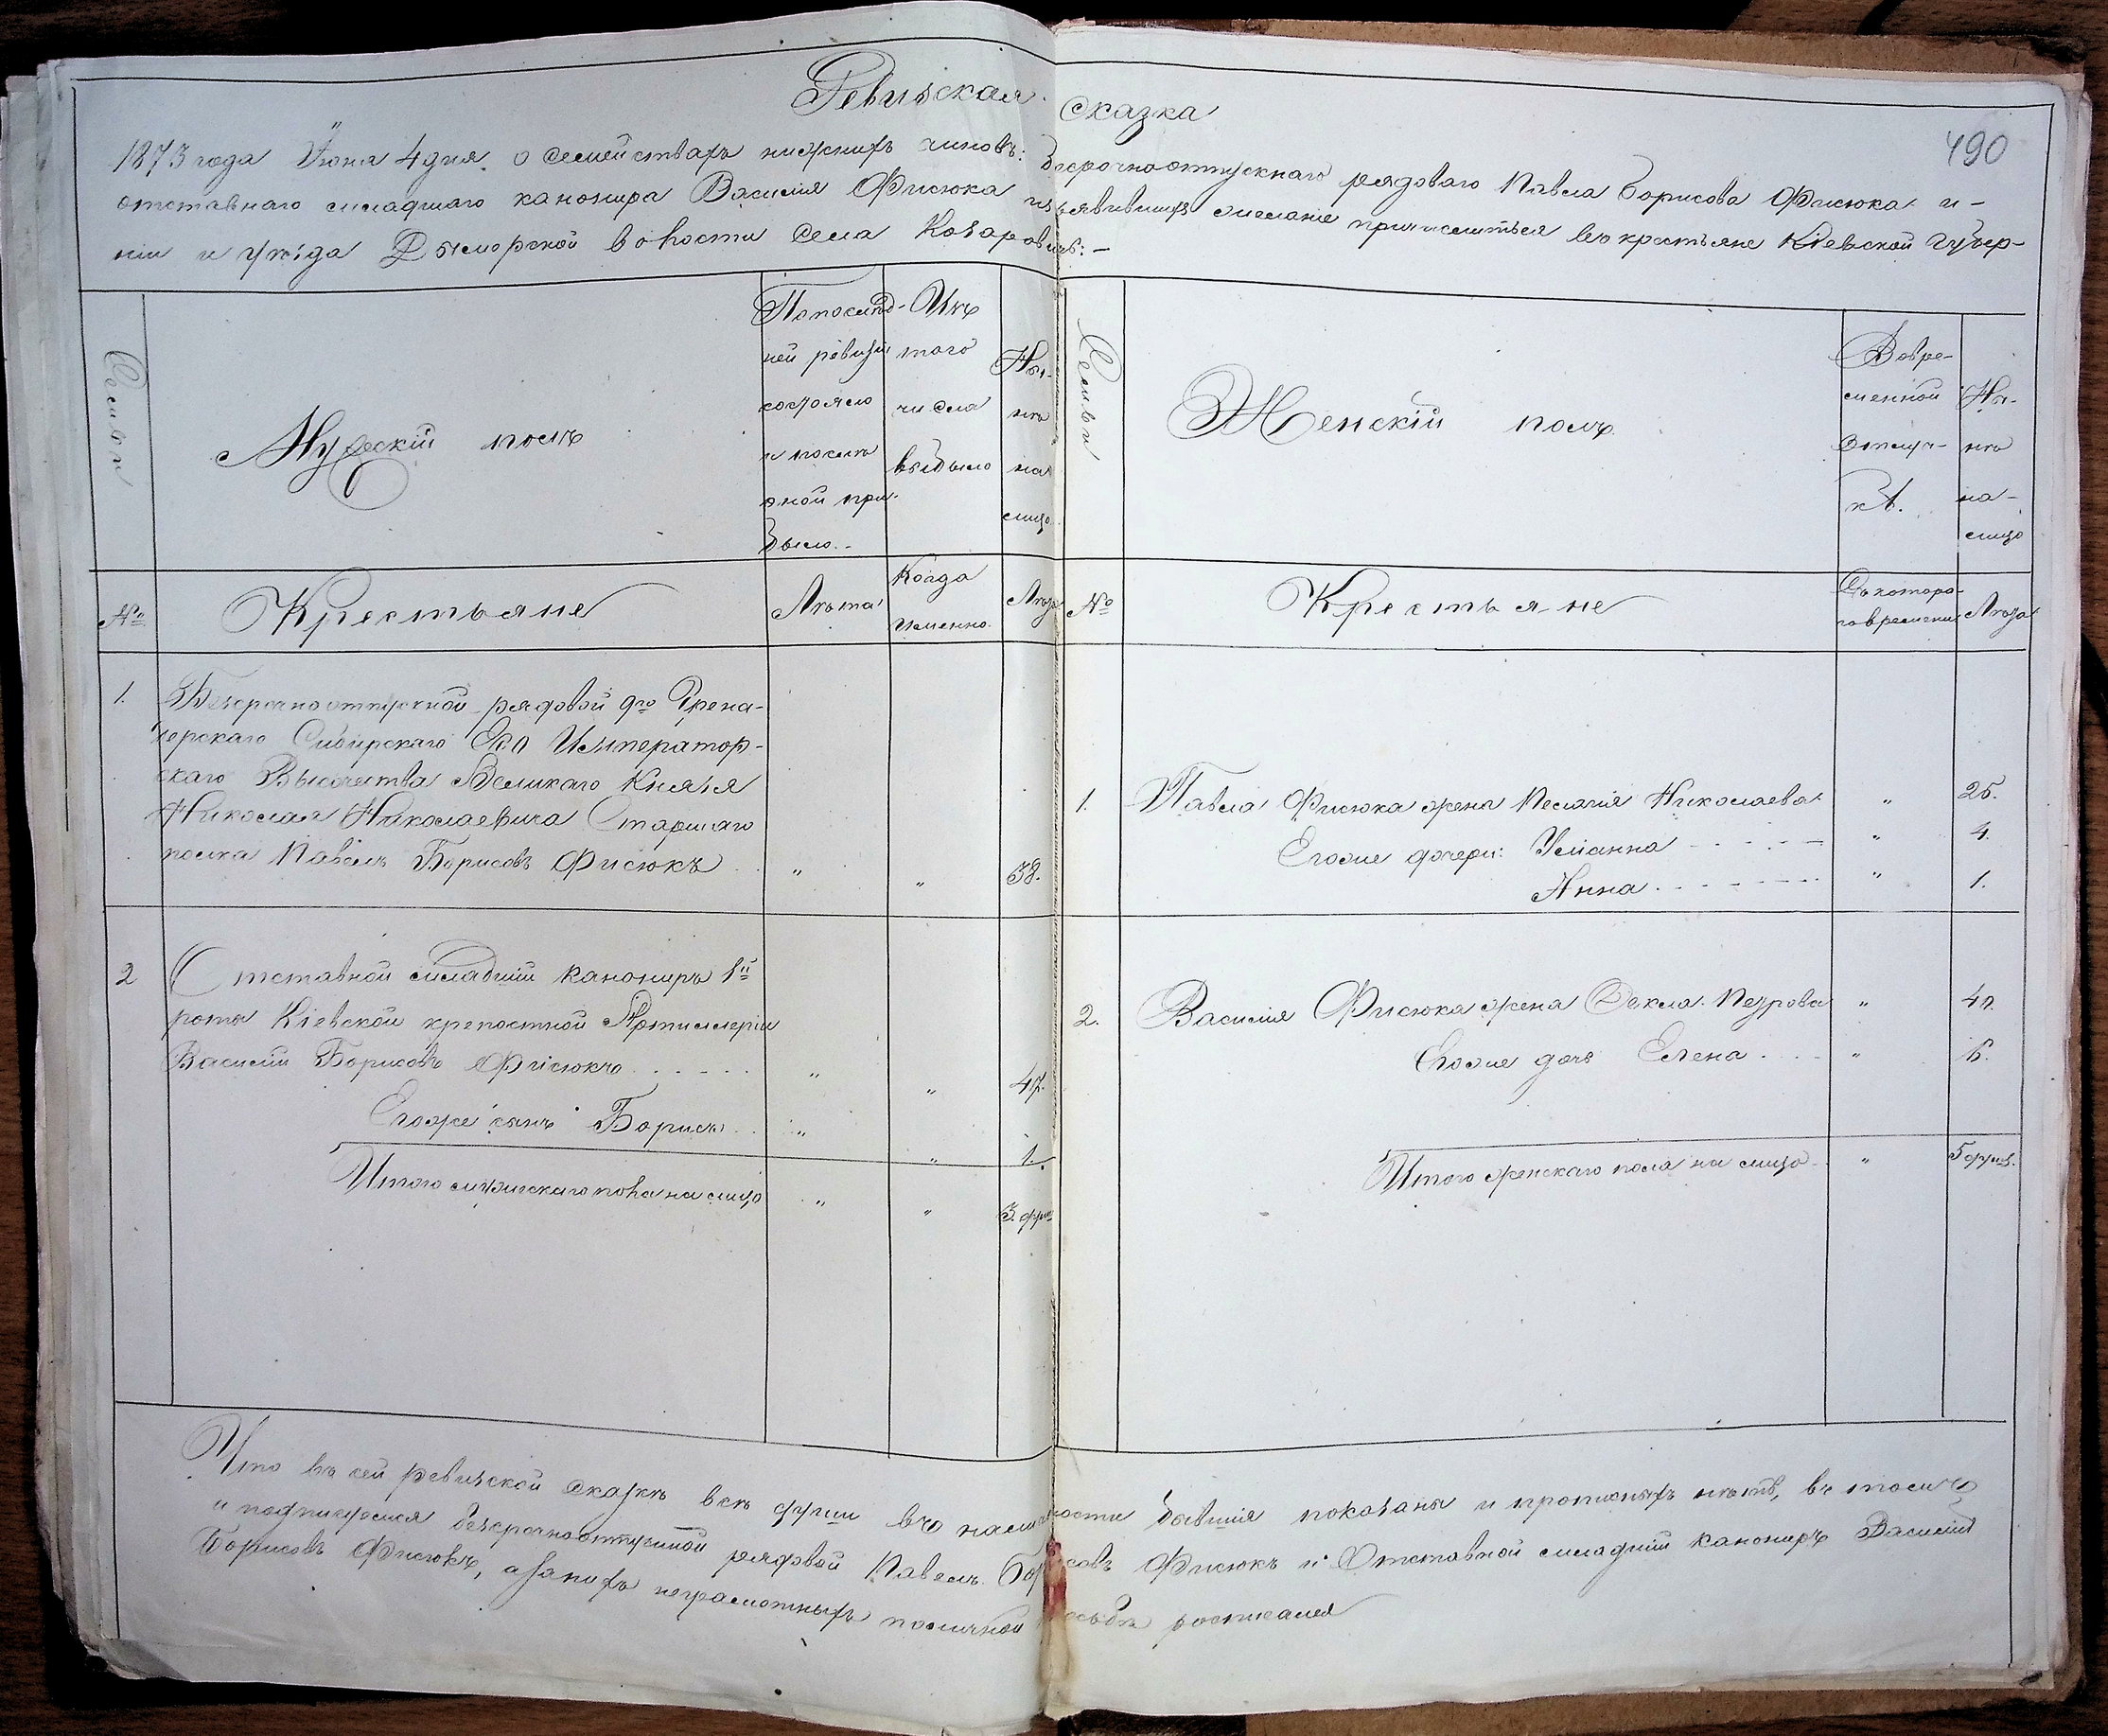 Ревизская сказка
490
1873 года Іюня 4 дня о семействахъ нижнихъ чиновъ: безсрочноотпускнаго рядоваго Павла Борисова Фисюка и-
отставнаго младшаго канонира Василія Фисюка изъявившихъ желаніе причислиться въ крестьяне Кіевской Губер-
ніи и уѣзда Дымерской волости села Козаровичъ:-
Семьи
Мужескій полъ
По послѣд-
ней ревизіи
состояло
и послѣ
оной при-
было.-
Изъ
того
числа
выбыло
Ны-
нѣ
на
лицо
Семьи
Женскій полъ
Во вре-
менной
отлуч-
кѣ.
Ны-
нѣ
на-
лицо
№
Крестьяне
Лѣта
Когда
именно.
Лѣта
№
Крестьяне
Съ котора-
го времени
Лѣта
1. Безсрочноотпускной рядовой 9го Грена-
дерскаго Сибирскаго Его Император-
скаго Высочества Великаго Князя
Николая Николаевича Старшаго
полка Павелъ Борисовъ Фисюкъ " " 38.
1. Павла Фисюка жена Пелагія Николаева " 25.
Егоже дочери: Уліанна " 4.
Анна " 1.
2 Отставной младшій канониръ 1й
роты Кіевской крепостной Артиллеріи
Василій Борисовъ Фисюкъ " " 47.
Егоже сынъ Борисъ " " 1.
Итого мужескаго пола на лицо " " 3. души
2. Василія Фисюка жена Фекла Петрова "
Егоже дочь Елена "
Итого женскаго пола на лицо " 5 душ.
Что въ сей ревизской сказкѣ всѣ души въ наличности бывшія показаны и прописныхъ нѣтъ, въ томъ
и подписуемся безсрочноотпускной рядовой Павелъ Борисовъ Фисюкъ и Отставной младшій канониръ Василій
Борисовъ Фисюкъ, а за нихъ неграмотныхъ по личной просьбѣ росписался